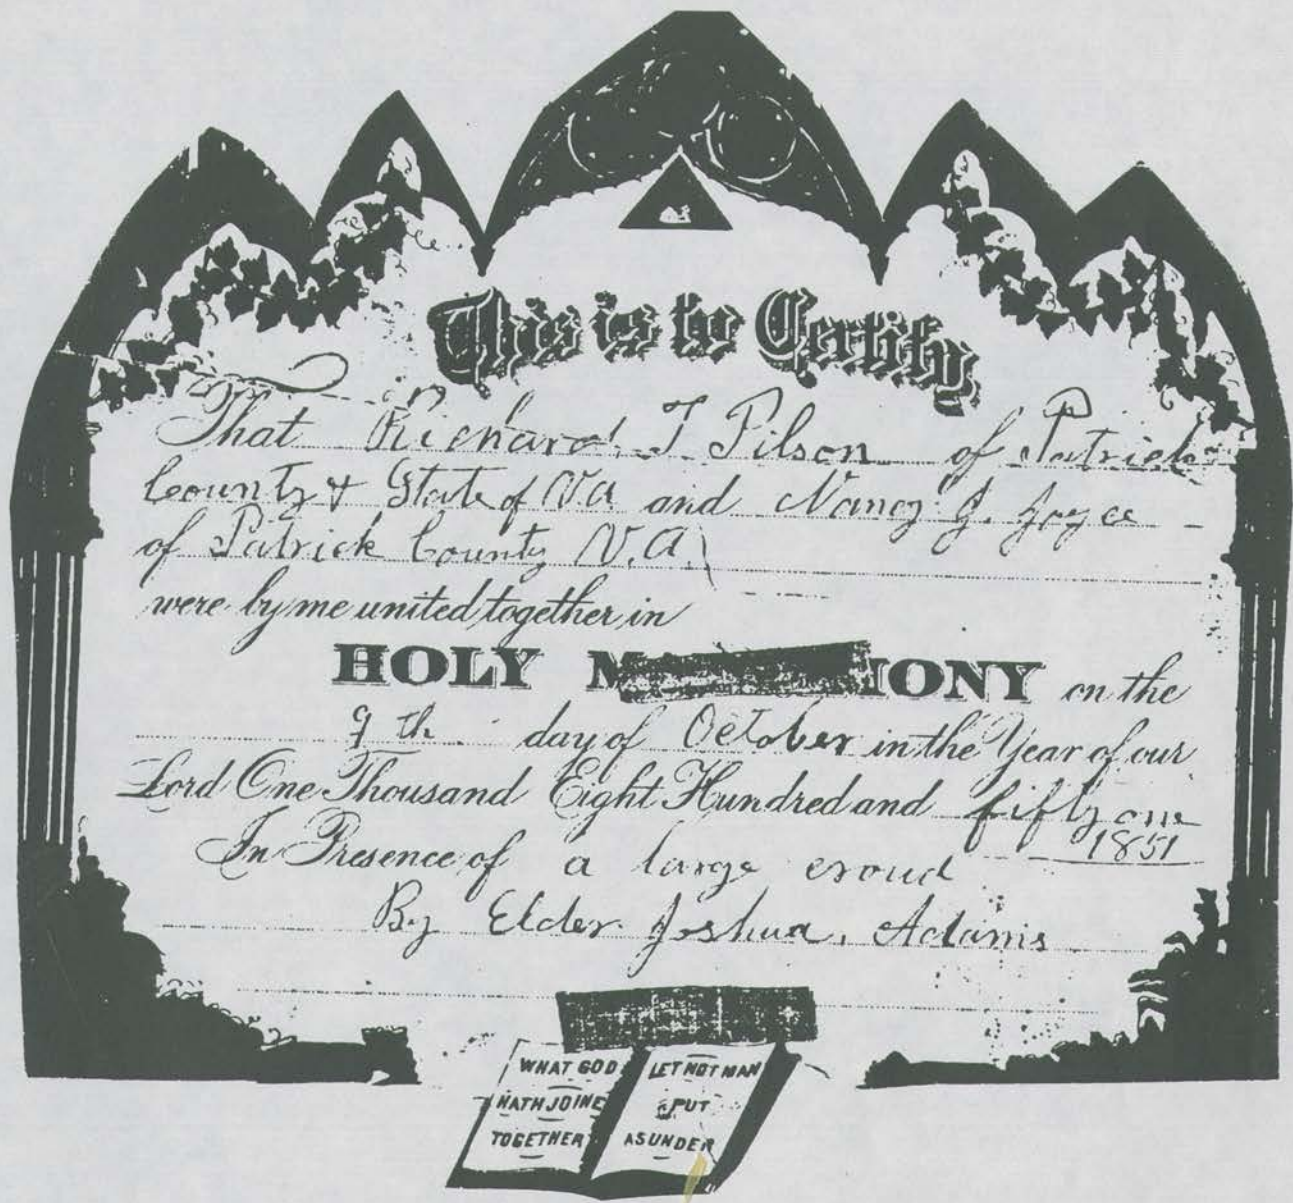 This is to Certify
That Richard T Pilson of Patrick
County & State of VA and Nancy J. Joyce
of Patrick County V.A.
were by me united together in
HOLY MONY on the
9th day of October in the Year of our
Lord One Thousand Eight Hundred and fifty one
1851
In Presence of a large croud
By Elder Joshua, Adams
WHAT GOD
HATH JOINE
TOGETHER
LET NOT MAN
PUT
ASUNDER